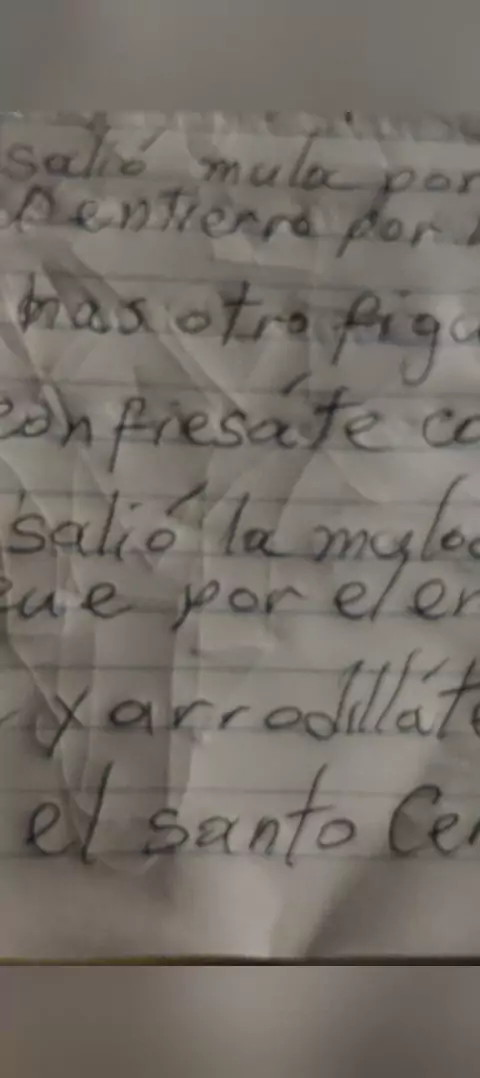 salió mula por
entierro por
mas otro figu
confiesáte co
salió la mula
que por el en
y arrodilláte
el santo Cer